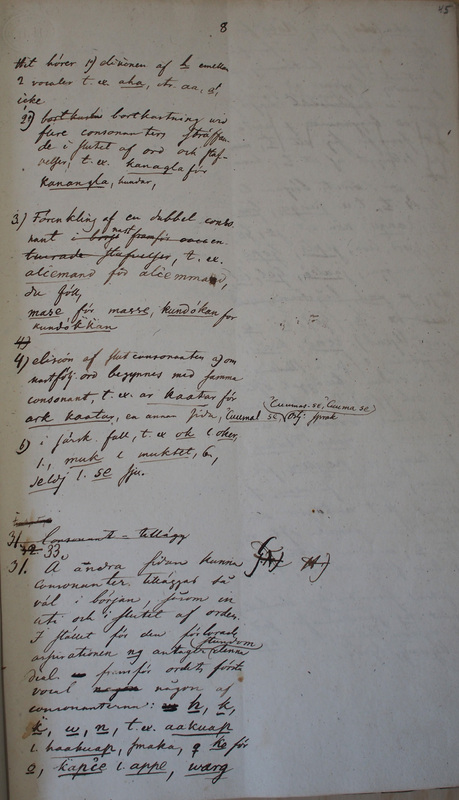 45
8
Hit hörer 1) elisionen af h emellan
2 vocaler t. ex. aha, str. aa, 
icke
2) bortkastning vid
flere consonanter, 
de i slutet af ord och staf-
velser, t. ex. kanagla för
kanangla, hundar,
3) Förenkling af en dubbel conso
nant
stafvelser, t. ex.
alcemand för alcemmand,
du föll,
mase för masse, kundókan for
kundókkan
4)
4) elision af slutconsonanten a) om
nästfölj. ord begynnes med samma
consonant, t. ex. ar kaatar för
ark kaatar, en annan sida, Cuumal se, Cuumas-se, Cuuma se
b) i särsk. fall, t. ex. ok l. oker,
1., muk l. muktet, 6,
seldj l. se sju.
31. Consonant-tillägg
33.
31. Å andra sidan kunna
consonanter tilläggas så
väl i början, såsom in
uti och i slutet af orden.
I stället för den förlorade
aspirationen ng antager stundom denna
dial. framför ordets första
vocal någon af
consonanterna: h, k,
k, w, n, t. ex. aakuap
l. haakuap, smaka, ko för
o, kapce l. appe, warg